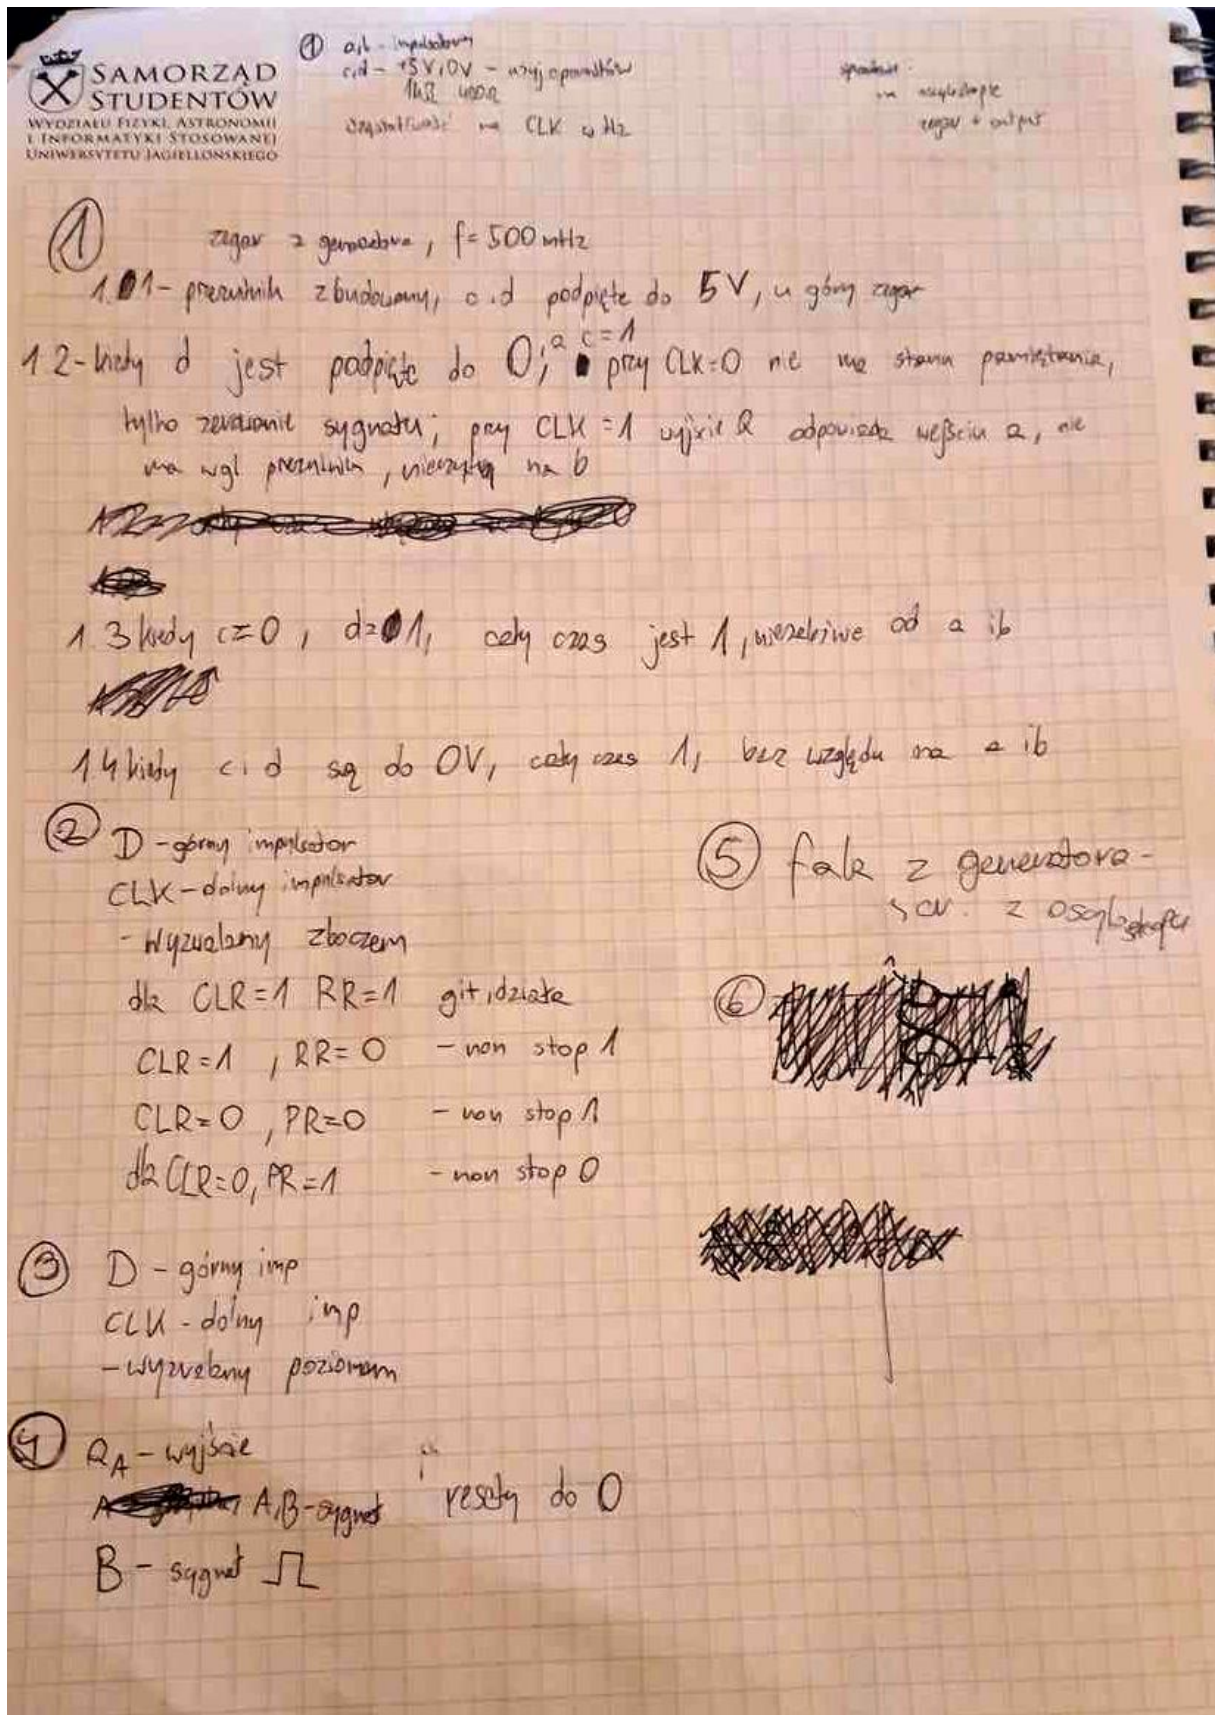 SAMORZĄD
STUDENTÓW
WYDZIAŁU FIZYKI, ASTRONOMII
I INFORMATYKI STOSOWANEJ
UNIWERSYTETU JAGIELLOŃSKIEGO
① a,b - impulsatory
c,d - +5V, 0V - użyj oporników
1kΩ
częstotliwość na CLK w Hz
na oscyloskopie
zegar + output
① zegar z generatora, f = 500 mHz
1.1 - przerzutnik zbudowany, c i d podpięte do 5V, u góry zegar
1.2 - kiedy d jest podpięte do 0, a c=1; przy CLK=0 nie ma stanu pamiętania,
tylko zerowanie sygnału; przy CLK=1 wyjście Q odpowiada wejściu a, nie
ma wgl przerzutnika, nieczuły na b
1.3 kiedy c=0, d=1, cały czas jest 1, niezależnie od a i b
1.4 kiedy c i d są do 0V, cały czas 1, bez względu na a i b
② D - górny impulsator
CLK - dolny impulsator
- wyzwalany zboczem
dla CLR=1 RR=1 git, działa
CLR=1, RR=0 - non stop 1
CLR=0, PR=0 - non stop 1
dla CLR=0, PR=1 - non stop 0
③ D - górny imp
CLK - dolny imp
- wyzwalany poziomem
④ QA - wyjście
A,B - sygnał resety do 0
B - sygnał
⑤ fala z generatora -
scr. z oscyloskopu
⑥